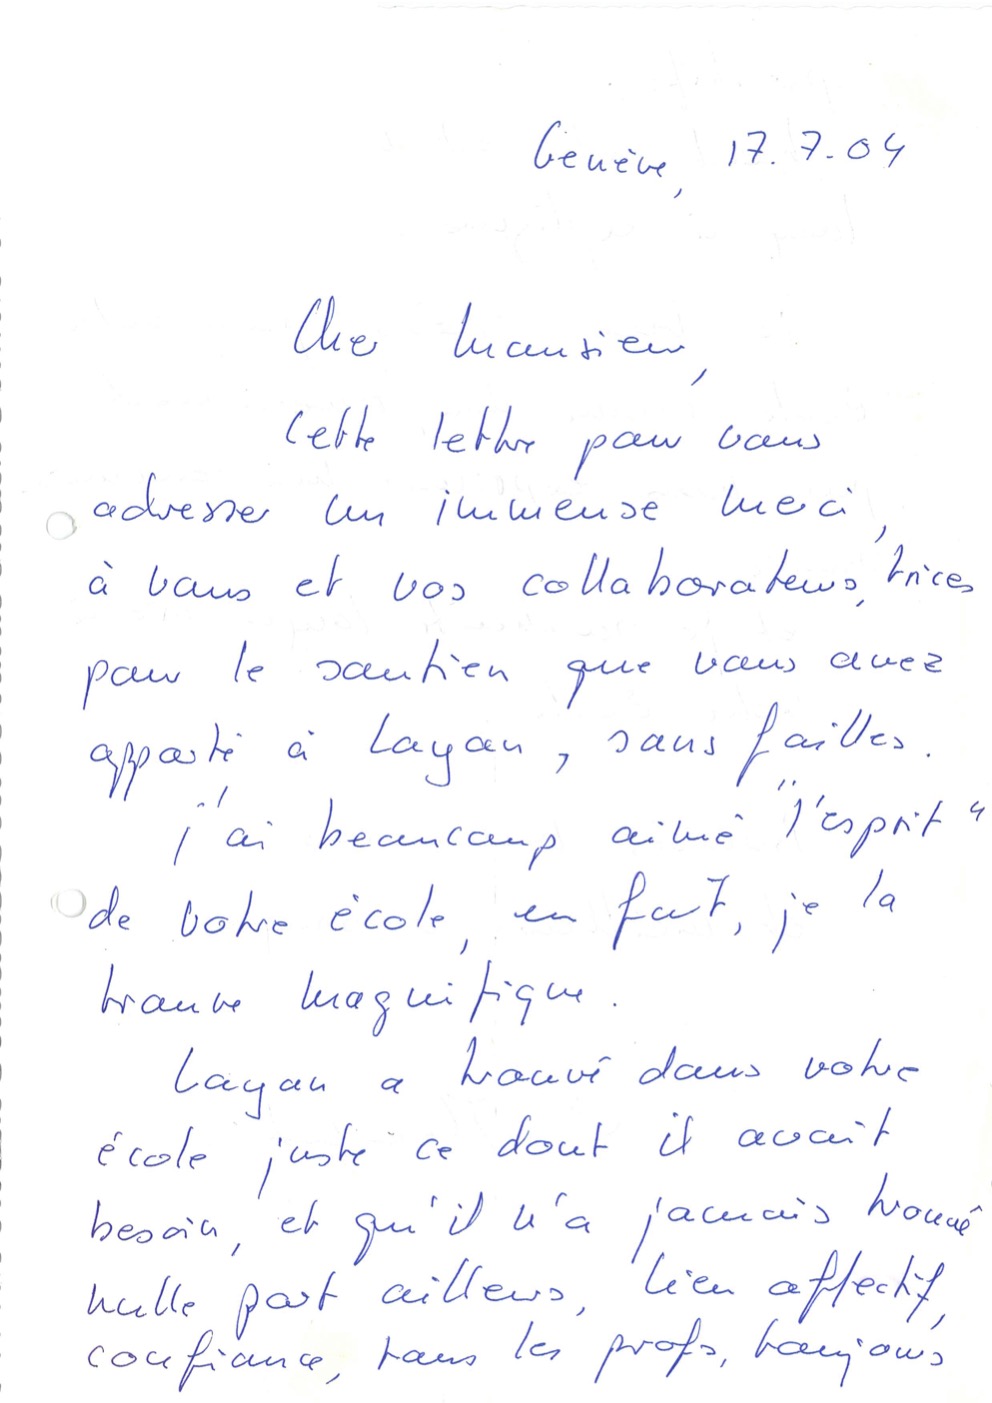 Genève, 17.7.04
Cher Monsieur,
Cette lettre pour vous
adresser un immense merci,
à vous et vos collaborateurs, trices
pour le soutien que vous avez
apporté à Layan, sans failles.
J'ai beaucoup aimé "l'esprit"
de votre école, en fait, je la
trouve magnifique.
Layan a trouvé dans votre
école juste ce dont il avait
besoin, et qu'il n'a jamais trouvé
nulle part ailleurs, lien affectif,
confiance, tous les profs, toujours